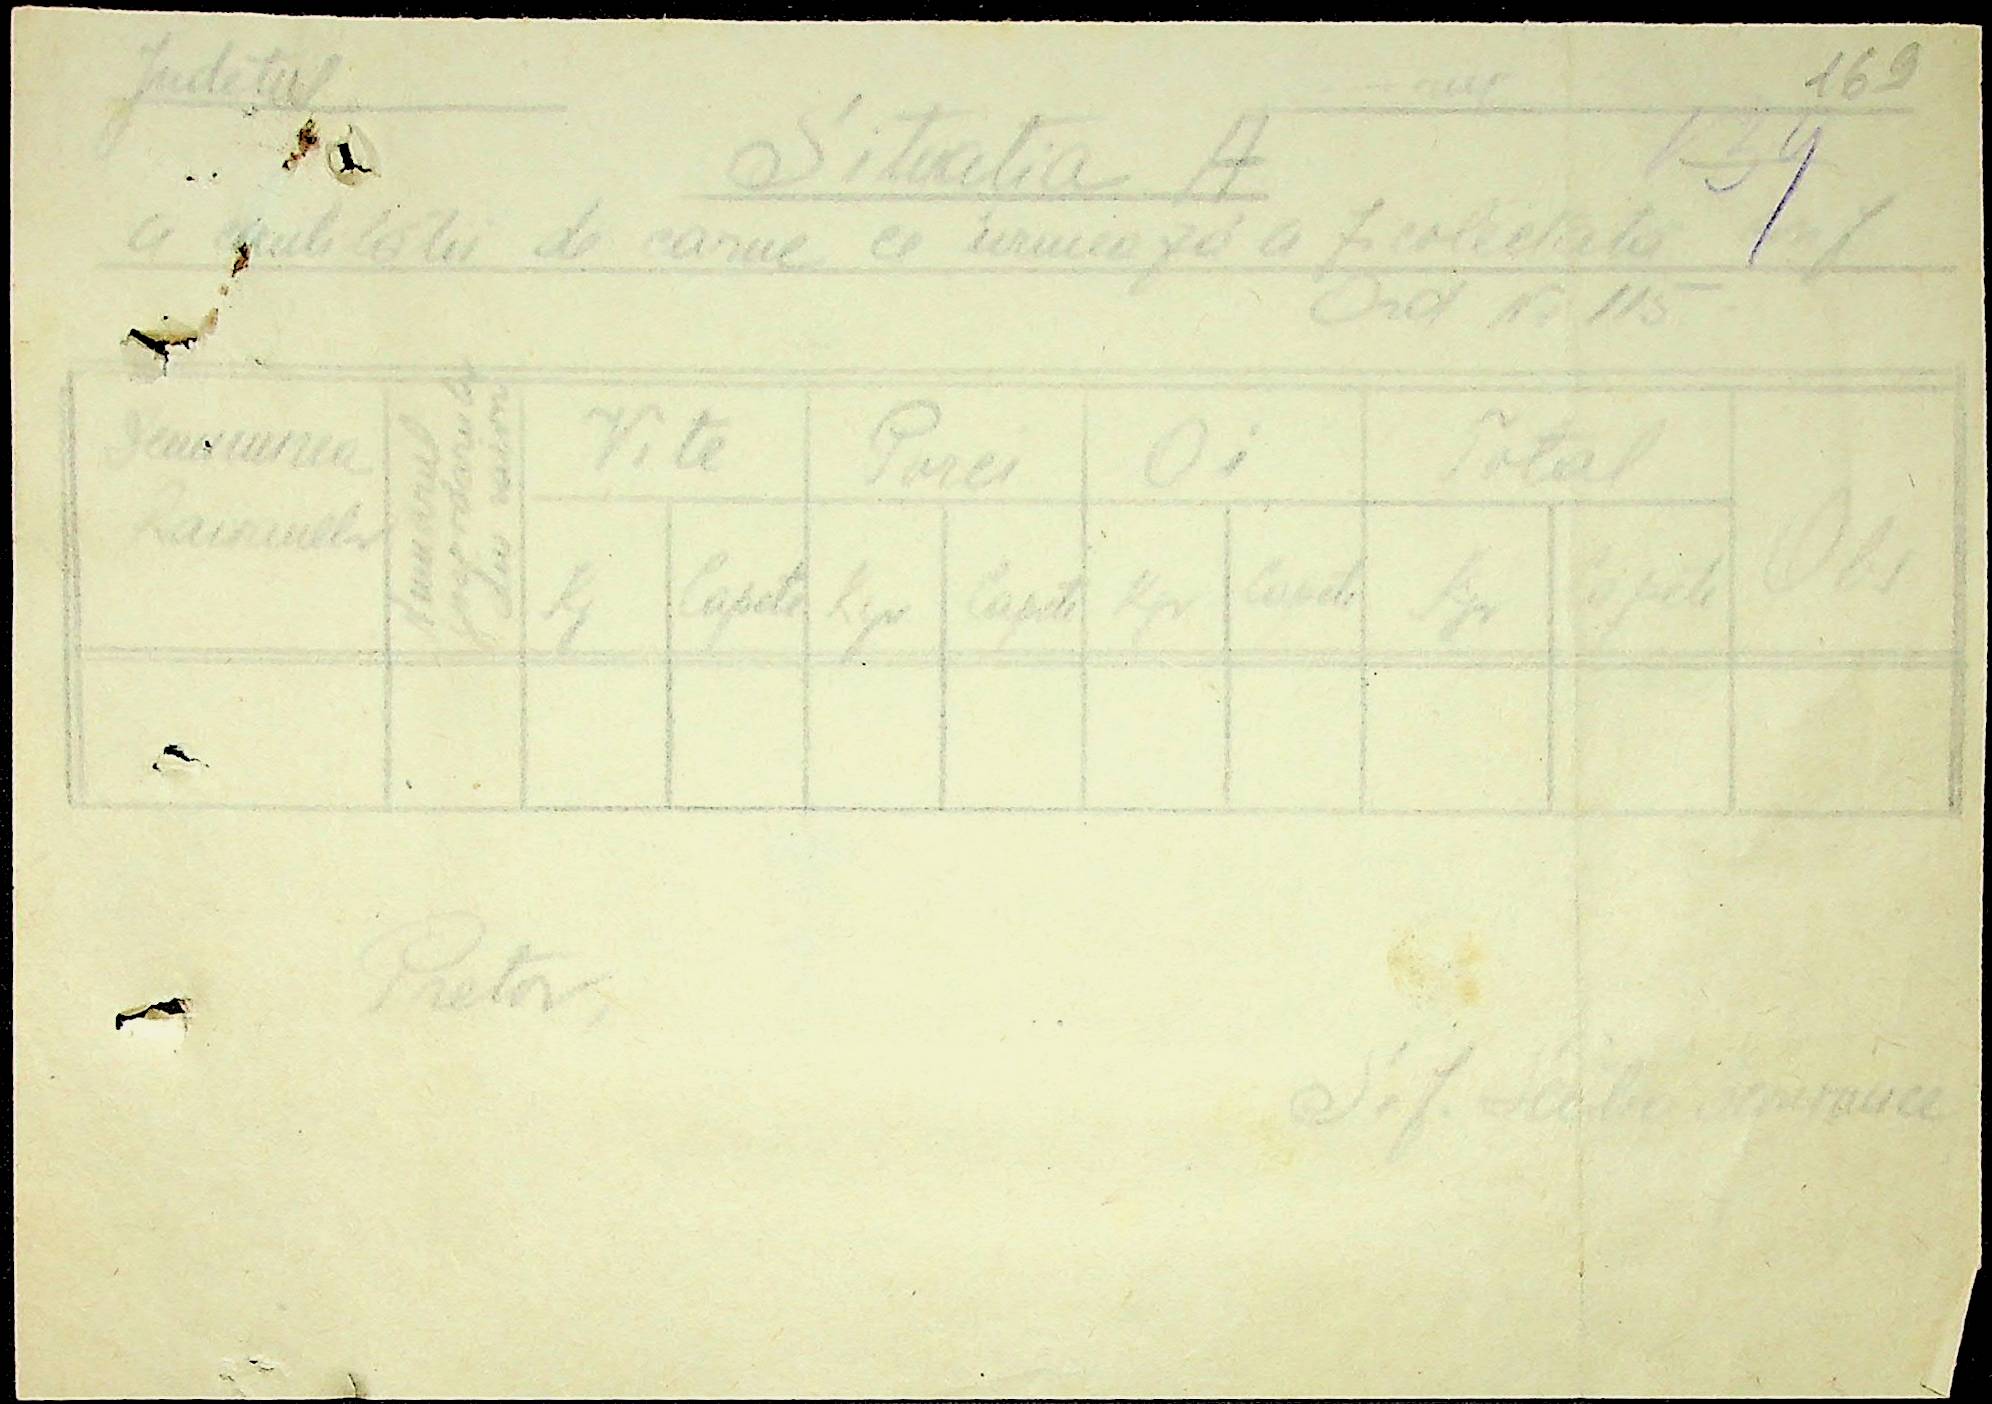 Județul
169
Situația A
a cantității de carne ce urmează a fi colectată
Ord Nr 115
Denumirea
Raioanelor
Numărul
din raion
Vite
Porci
Oi
Total
Obs
Kg
Capete
Kgr
Capete
Kgr
Capete
Kgr
Capete
Pretor,
Șef.